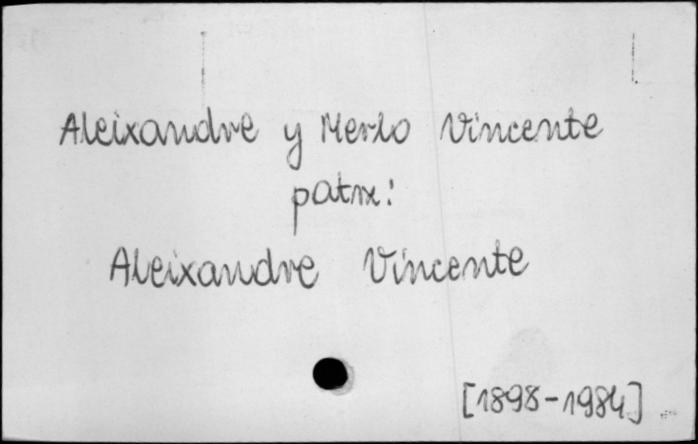 Aleixandre y Merlo Vincente
patrz:
Aleixandre Vincente
[1898-1984]